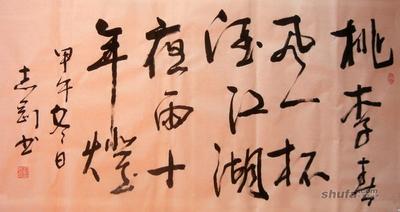 桃李春
风一杯
酒江湖
夜雨十
年燈
甲午冬日
志剛书